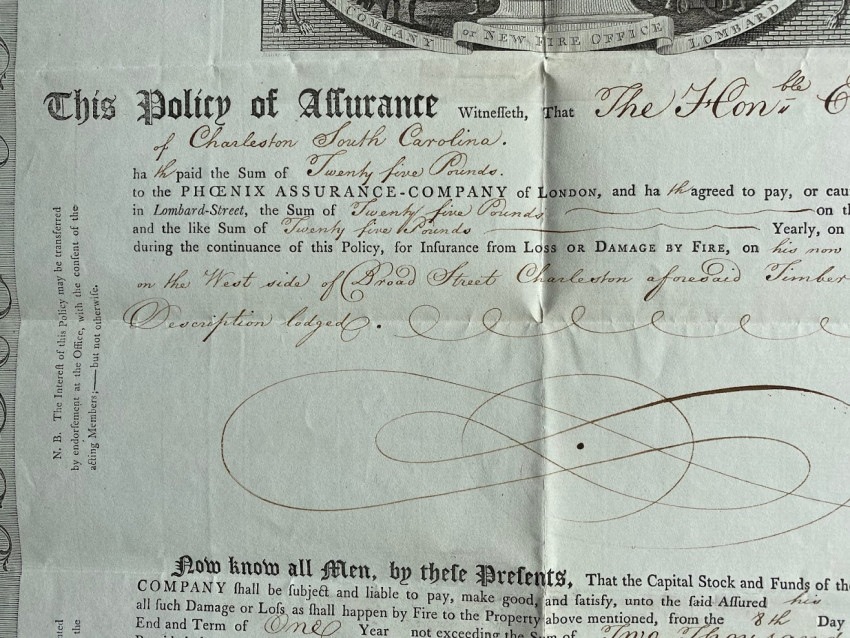 COMPANY or NEW FIRE OFFICE LOMBARD
This Policy of Aſſurance Witneſſeth, That The Honble
of Charleston South Carolina.
ha th paid the Sum of Twenty five Pounds.
to the PHŒNIX ASSURANCE-COMPANY of LONDON, and ha th agreed to pay, or cau
in Lombard-Street, the Sum of Twenty five Pounds on th
and the like Sum of Twenty five Pounds Yearly, on
during the continuance of this Policy, for Inſurance from LOSS OR DAMAGE BY FIRE, on his now
on the West side of Broad Street Charleston aforesaid Timber
Description lodged.
N. B. The Intereſt of this Policy may be transferred
by endorſement at the Office, with the conſent of the
acting Members;—but not otherwiſe.
Now know all Men, by theſe Preſents, That the Capital Stock and Funds of the
COMPANY ſhall be ſubject and liable to pay, make good, and ſatisfy, unto the ſaid Aſſured his
all ſuch Damage or Loſs as ſhall happen by Fire to the Property above mentioned, from the 8th Day
End and Term of One Year not exceeding the Sum of Two Thousand
the